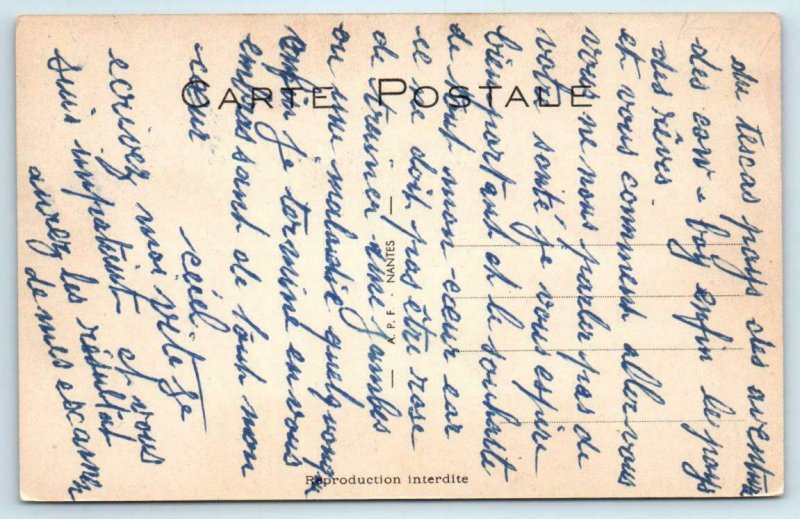 du tescas pays des aventure
des cow-boy enfin le pays
des rêves.
et vous comment aller-vous
vous ne nous parler pas de
votre santé je vous espère
bien portant et le souhaite
de tout mon cœur car
ce ne doit pas être rose
de trainer une jambes
ou une maladie quelquonque
enfin je termine en vous
embrassant de tout mon
cœur
ceil.
ecrivez moi vite je
suis impatient et vous
aurez les résultat
de mes examen
CARTE POSTALE
— A. P. F. - NANTES —
Reproduction interdite